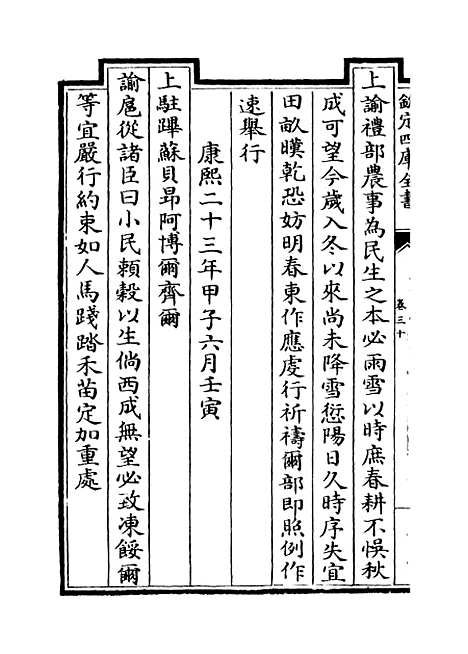 欽定四庫全書
卷三十
上諭禮部農事為民生之本必雨雪以時庶春耕不悞秋
成可望今歲入冬以來尚未降雪愆陽日久時序失宜
田畝暵乾恐妨明春東作應虔行祈禱爾部即照例作
速舉行
康熙二十三年甲子六月壬寅
上駐蹕蘇貝昻阿博爾齊爾
諭扈從諸臣曰小民賴穀以生倘西成無望必致凍餒爾
等宜嚴行約束如人馬踐踏禾苗定加重處